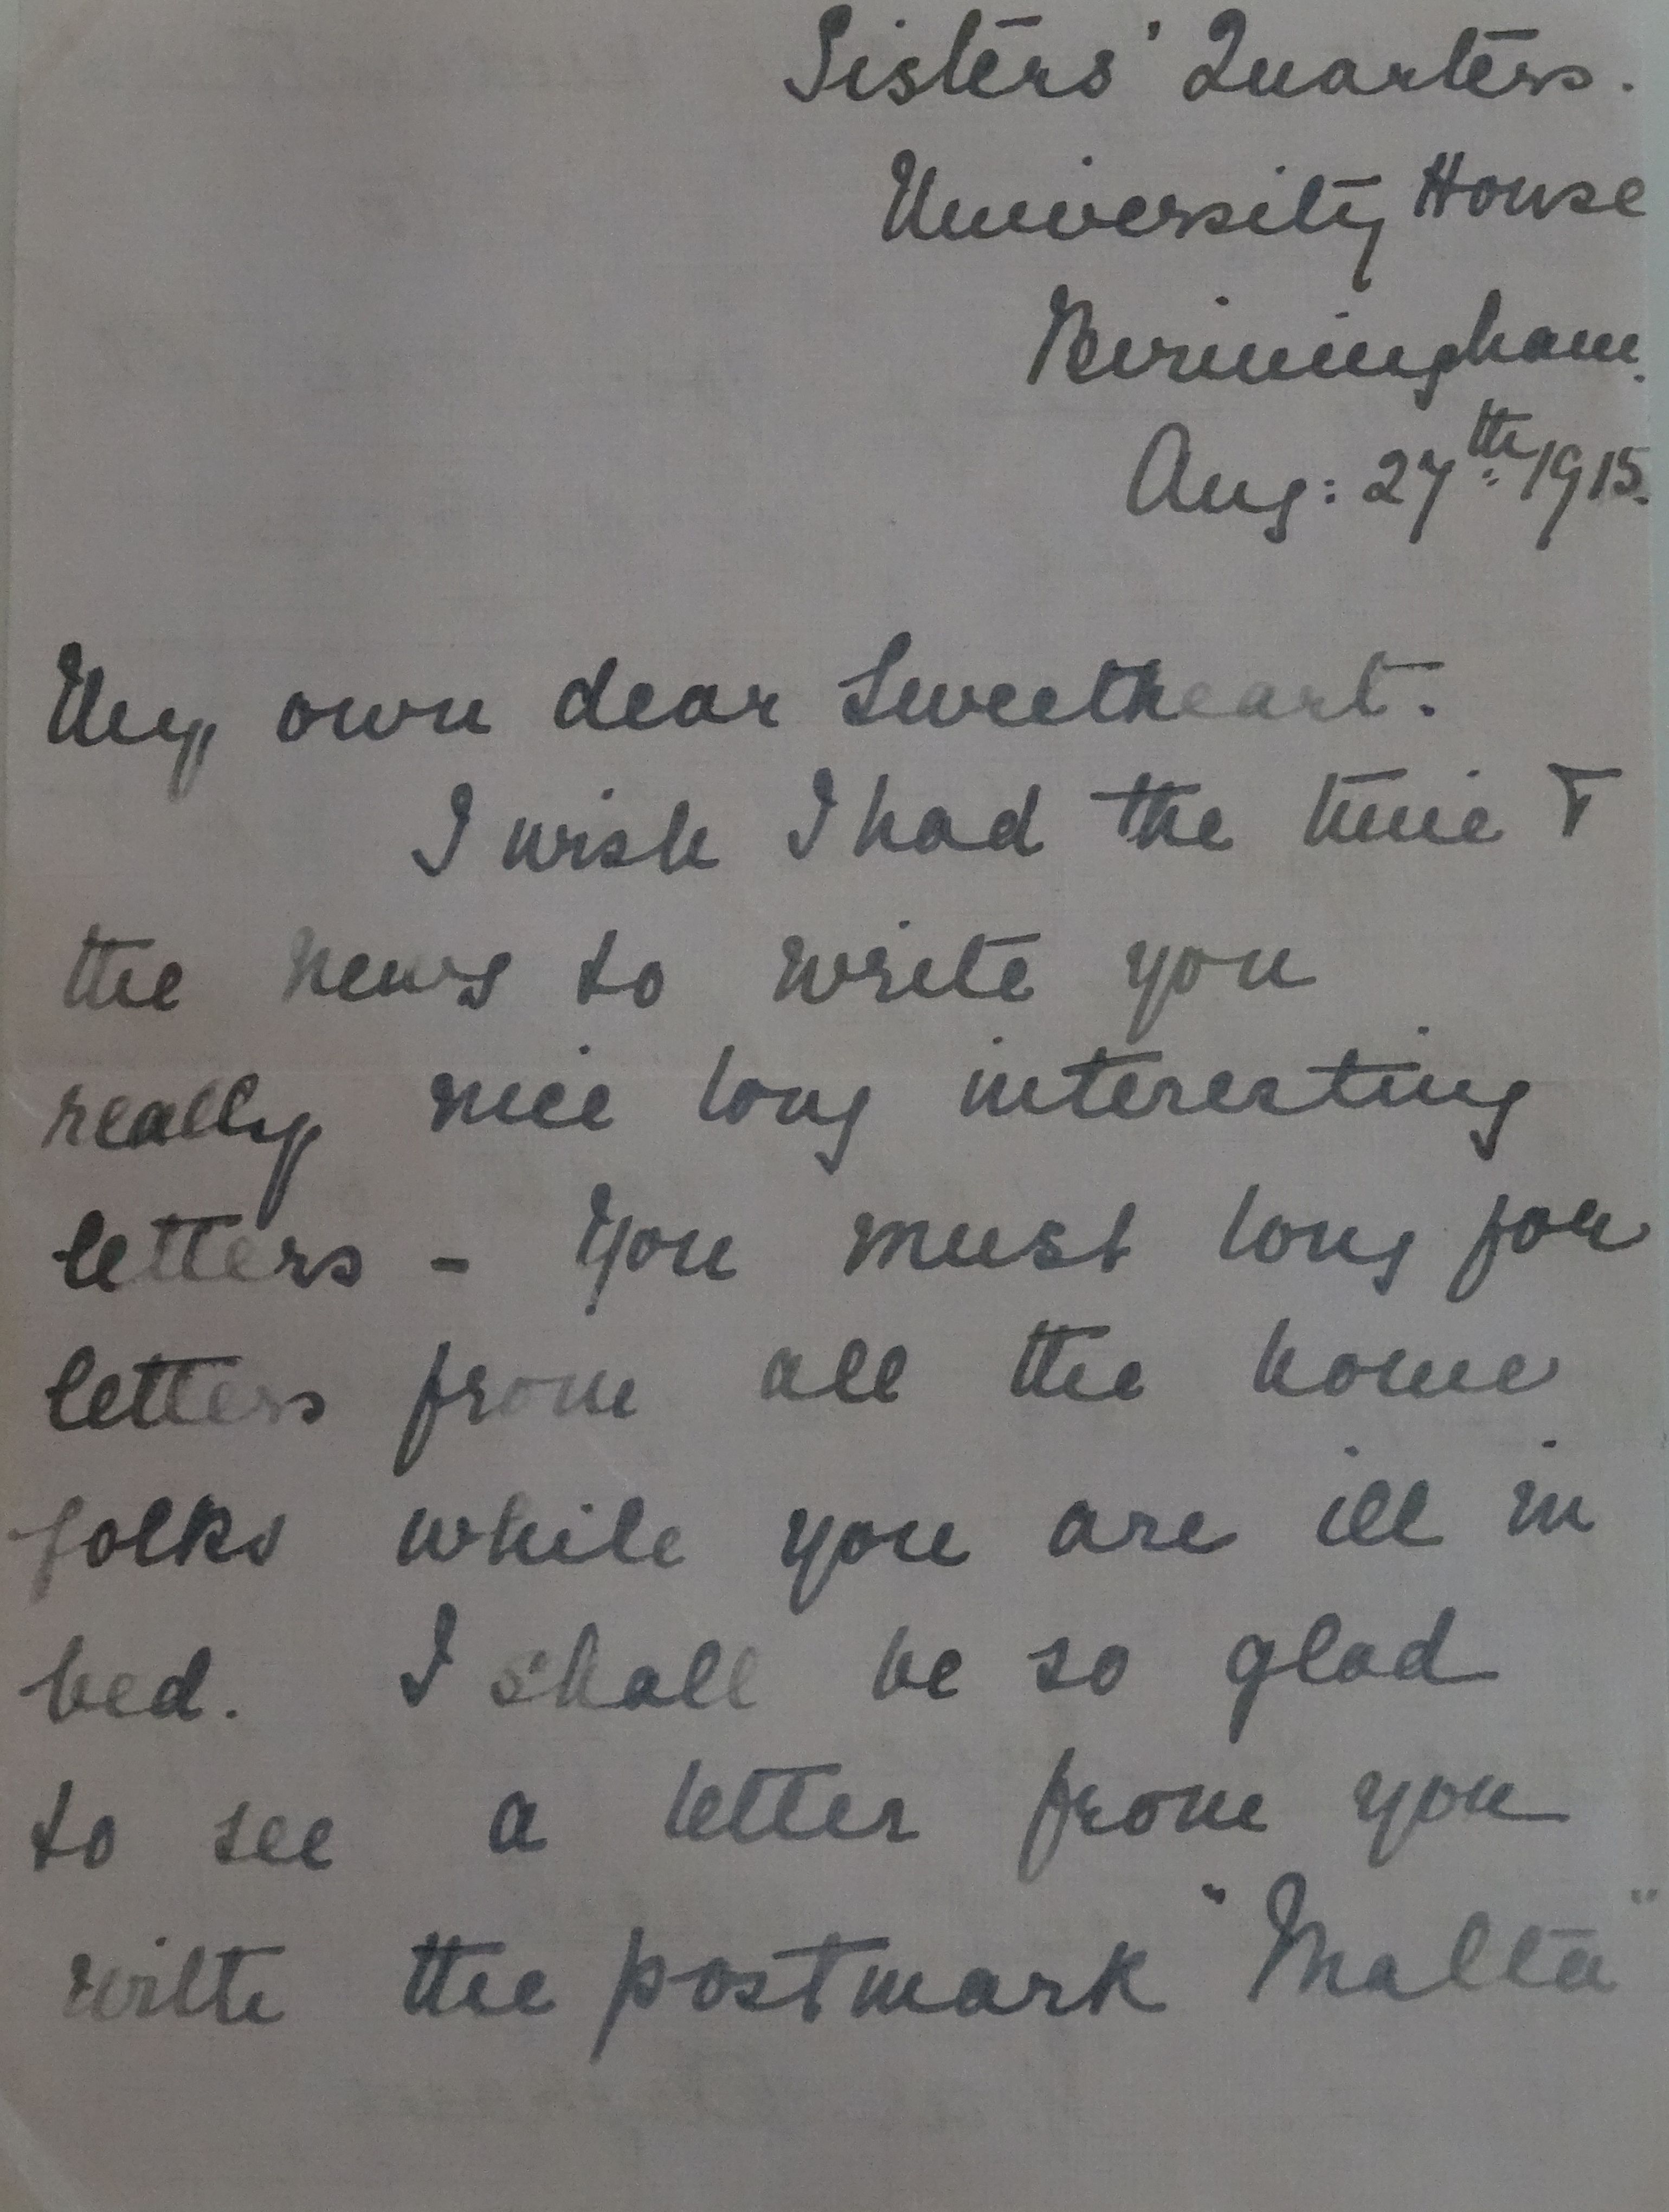 Sisters' Quarters.
University House
Birmingham.
Aug: 27th 1915.
My own dear Sweetheart.
I wish I had the time &
the news to write you
really nice long interesting
letters - You must long for
letters from all the home
folks while you are ill in
bed. I shall be so glad
to see a letter from you
with the postmark "Malta"